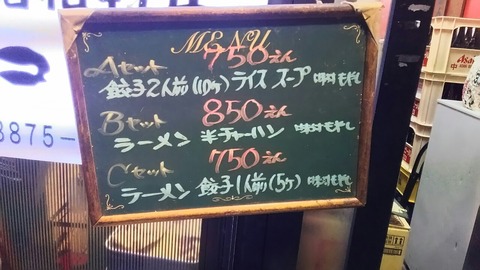 MENU
Aセット 750えん
餃子2人前(10ヶ) ライス スープ 味付もやし
Bセット 850えん
ラーメン 半チャーハン 味付もやし
Cセット 750えん
ラーメン 餃子1人前(5ヶ) 味付もやし
3875-
Asahi